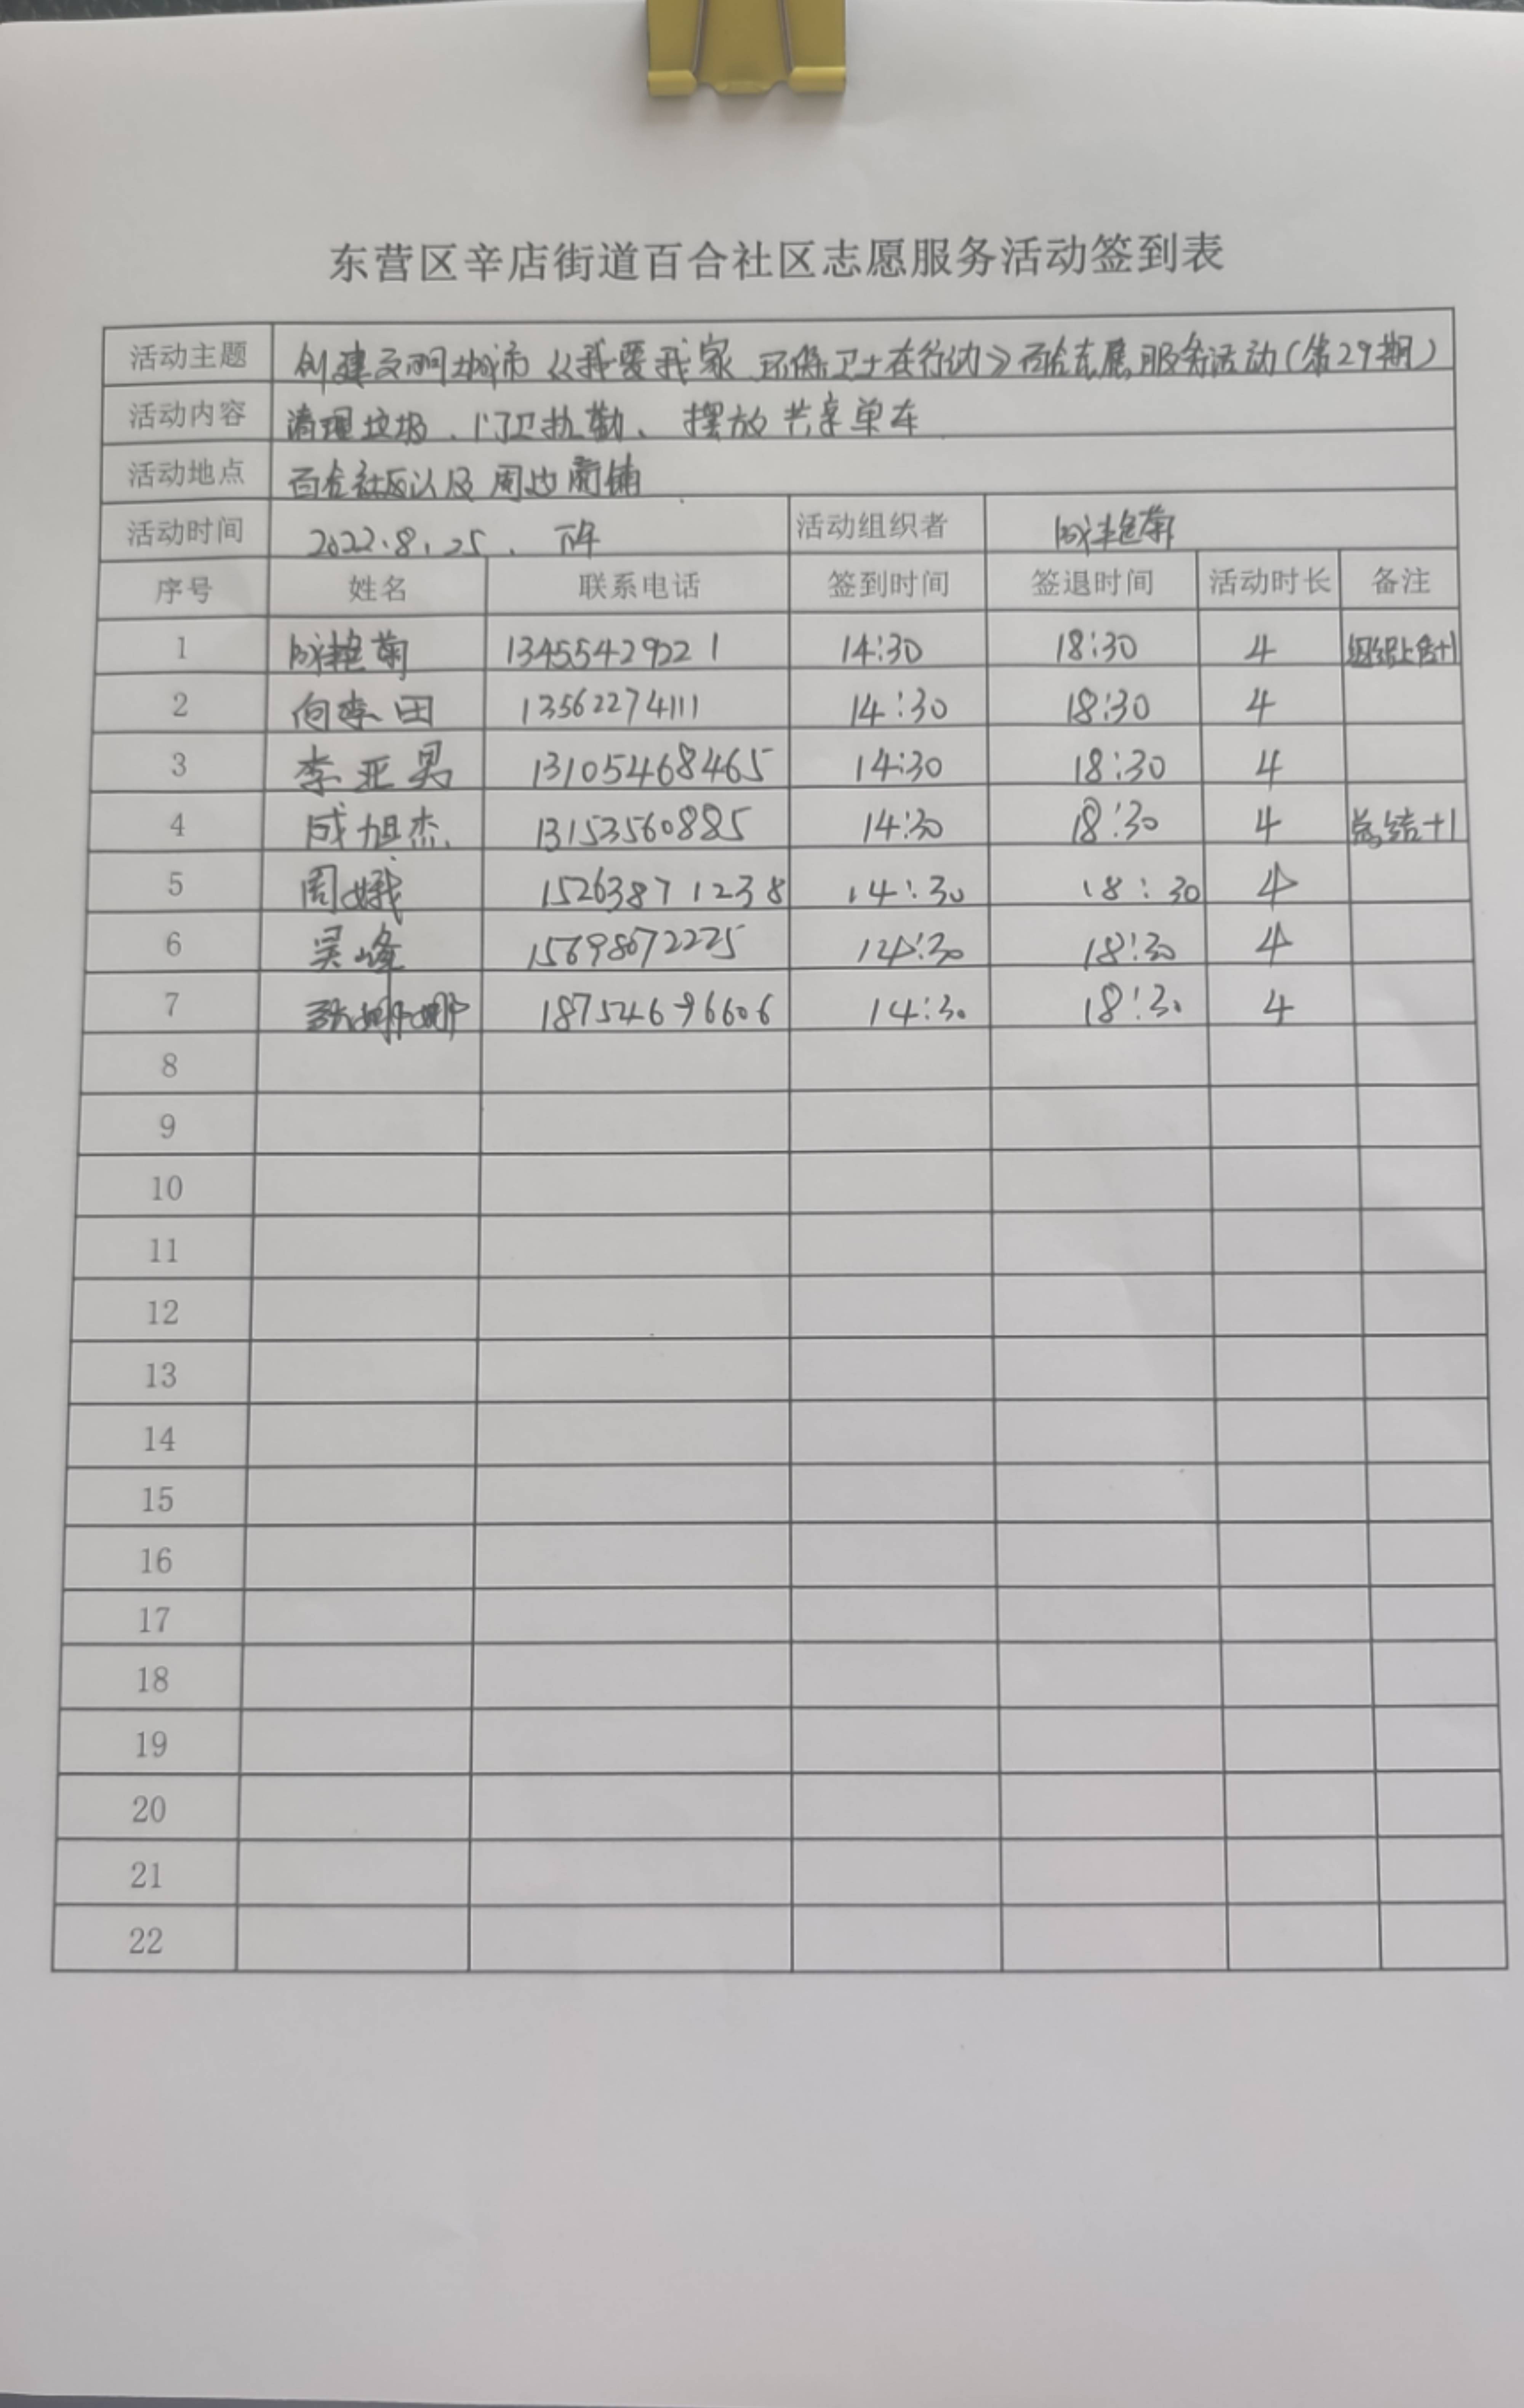 东营区辛店街道百合社区志愿服务活动签到表
活动主题 创建文明城市《我爱我家 环保卫士在行动》百合志愿服务活动(第29期)
活动内容 清理垃圾、门卫执勤、摆放共享单车
活动地点 百合社区以及周边商铺
活动时间 2022.8.25. 下午 活动组织者 成艳菊
序号 姓名 联系电话 签到时间 签退时间 活动时长 备注
1 成艳菊 13455429221 14:30 18:30 4 组织上传+1
2 向李田 13562274111 14:30 18:30 4
3 李亚男 13105468465 14:30 18:30 4
4 成旭杰 13153560885 14:30 18:30 4 总结+1
5 周娥 15263871238 14:30 18:30 4
6 吴峰 15698672225 14:30 18:30 4
7 张娜娜 18754696606 14:30 18:30 4
8
9
10
11
12
13
14
15
16
17
18
19
20
21
22